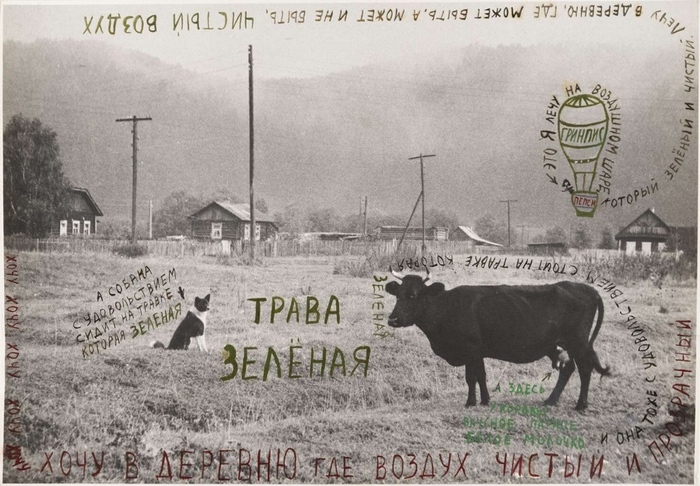 ХОЧУ ХОЧУ ХОЧУ ХОЧУ ХОЧУ
ХОЧУ В ДЕРЕВНЮ ГДЕ ВОЗДУХ ЧИСТЫЙ И ПРОЗРАЧНЫЙ
ЛЕЧУ В ДЕРЕВНЮ, ГДЕ МОЖЕТ БЫТЬ, А МОЖЕТ И НЕ БЫТЬ, ЧИСТЫЙ ВОЗДУХ
КОТОРЫЙ ЗЕЛЁНЫЙ И ЧИСТЫЙ.
ЭТО Я ЛЕЧУ НА ВОЗДУШНОМ ШАРЕ
ГРИНПИС
ПЕПСИ
А СОБАКА
С УДОВОЛЬСТВИЕМ
СИДИТ НА ТРАВКЕ
КОТОРАЯ ЗЕЛЕНАЯ
ТРАВА
ЗЕЛЁНАЯ
И ОНА ТОЖЕ С УДОВОЛЬСТВИЕМ СТОИТ НА ТРАВКЕ КОТОРАЯ ЗЕЛЕНАЯ
А ЗДЕСЬ
У КОРОВЫ
ВКУСНОЕ
БЕЛОЕ МОЛОЧКО